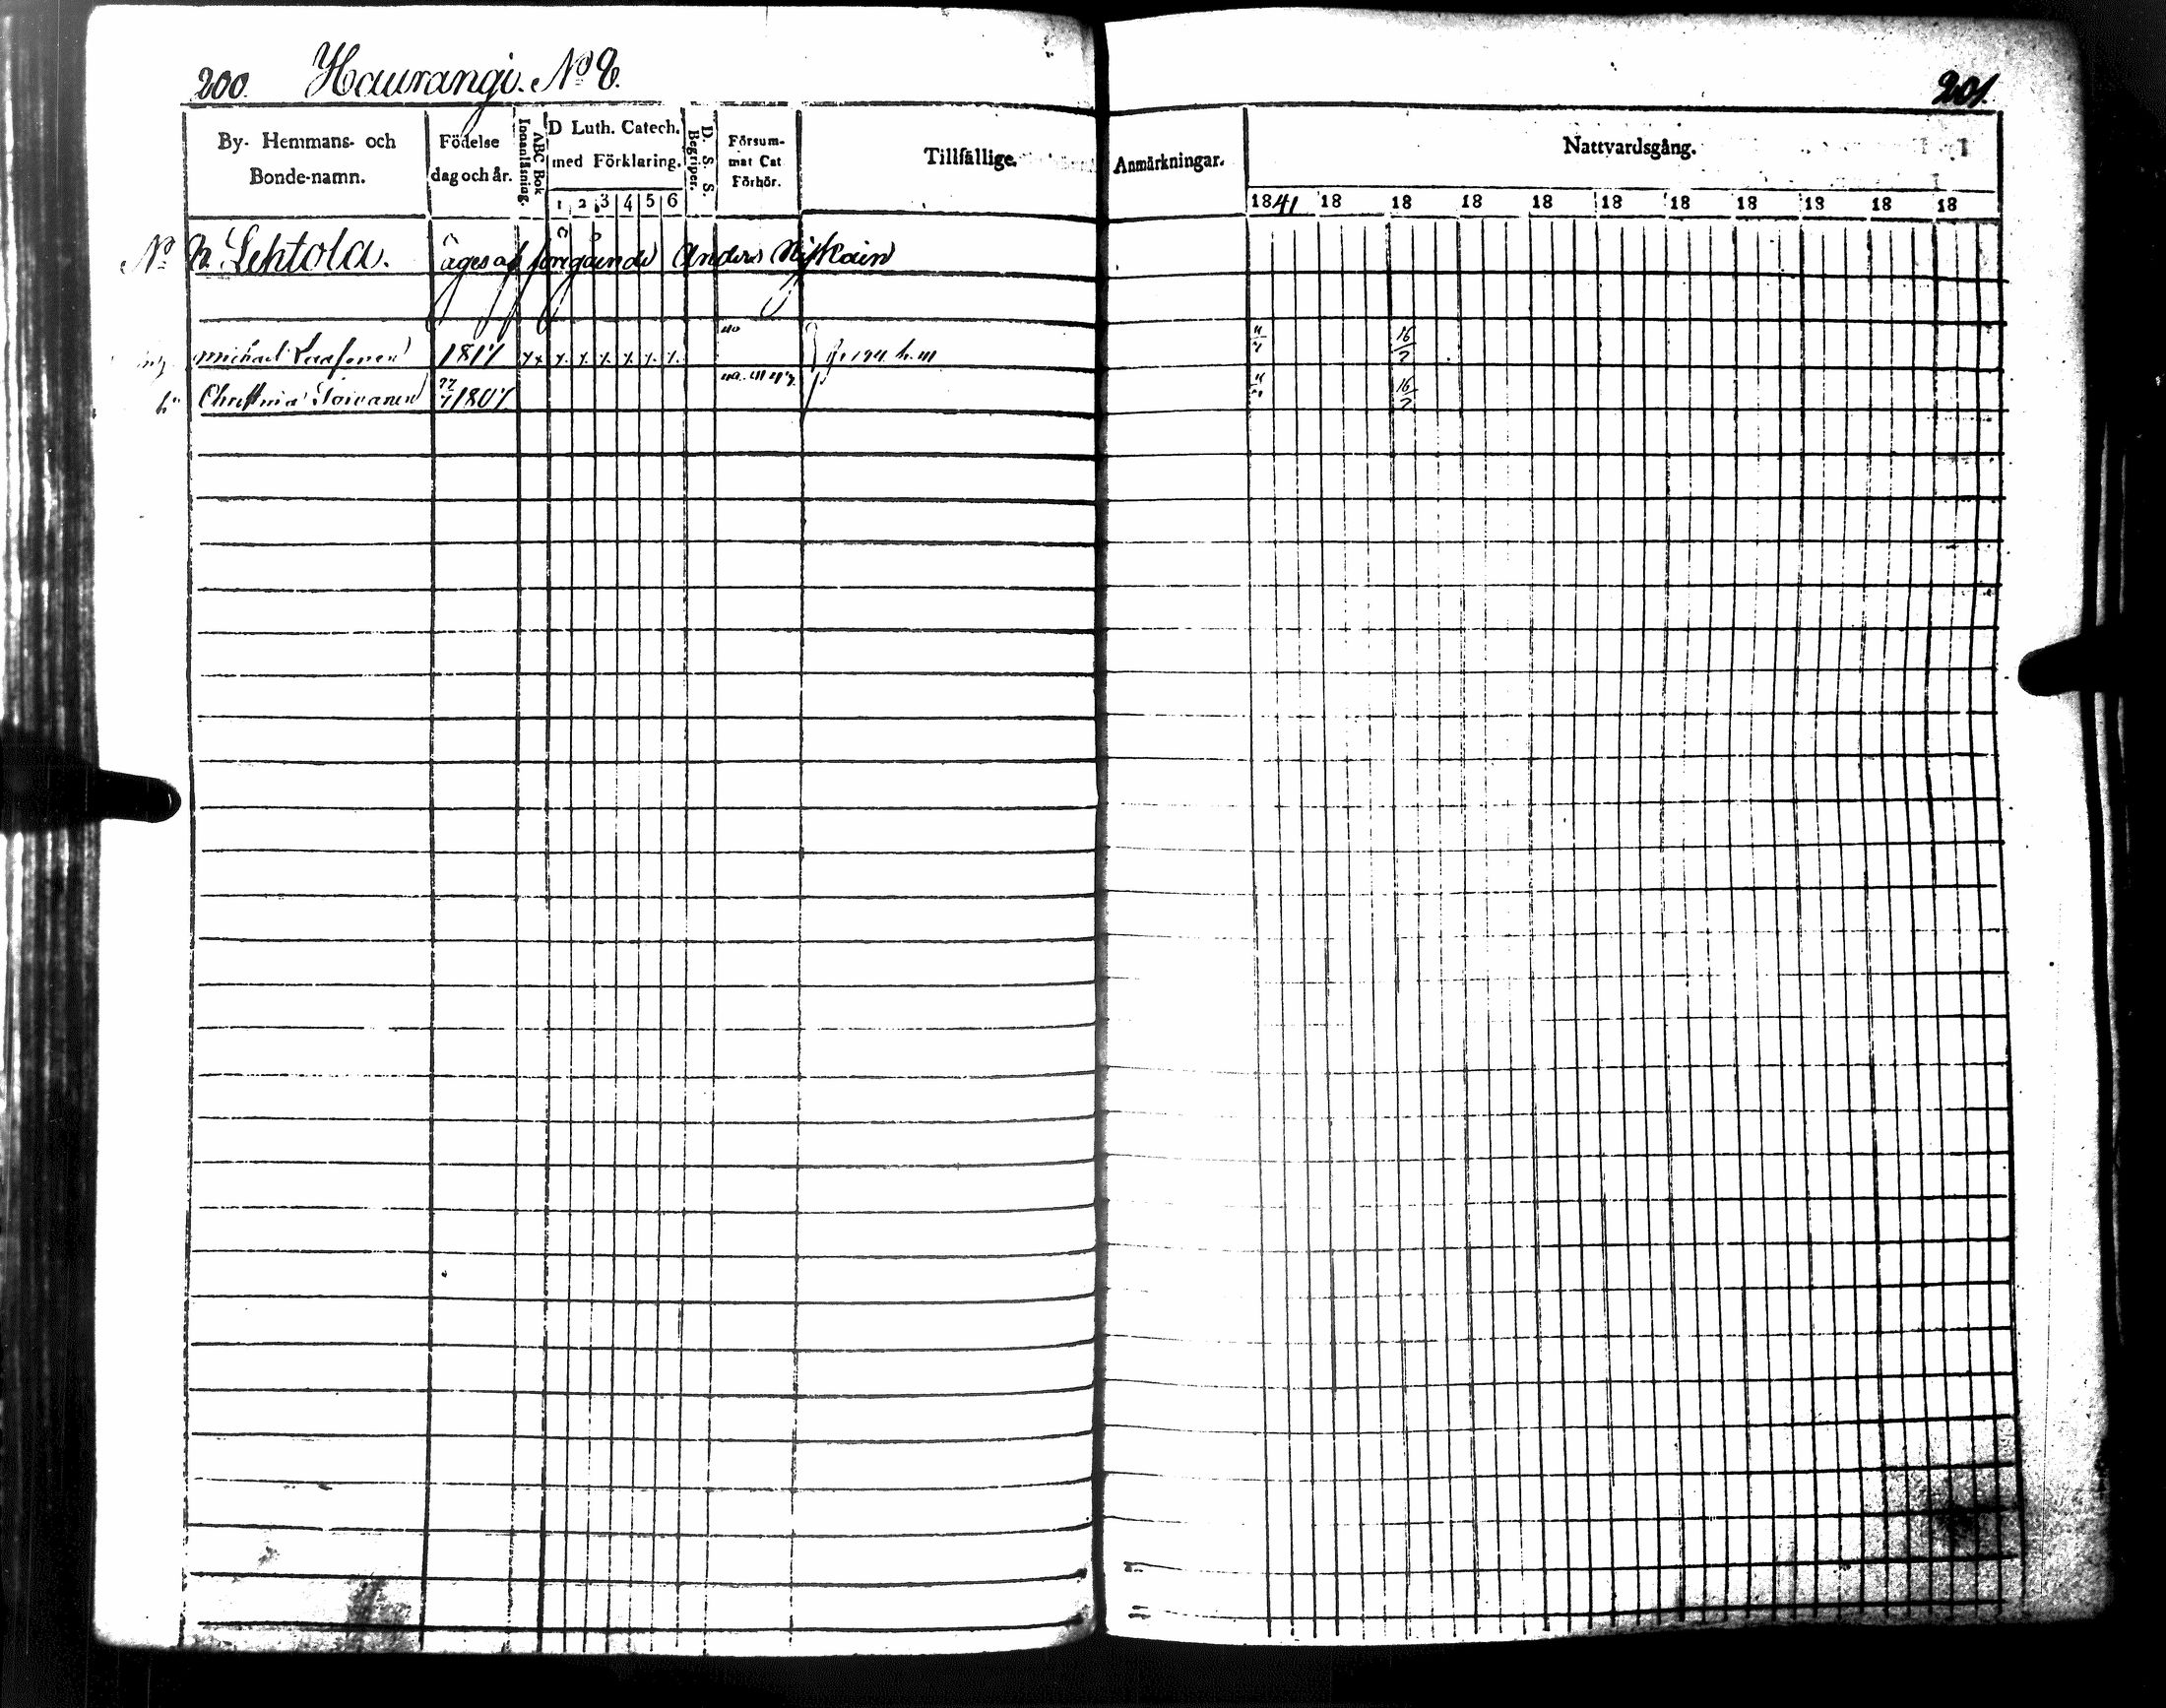 200. Haurangi. No 8.
201.
By- Hemmans- och Bonde-namn.
Födelse dag och år.
Innanläsning.
ABC Bok
D Luth. Catech. med Förklaring.
1 2 3 4 5 6
D. S. S. Begriper.
Försum- mat Cat Förhör.
Tillfällige.
Anmärkningar.
Nattvardsgång.
1841 18 18 18 18 18 18 18 18 18 18
No Lehtola. äges af föregående Anders
Michael 1817
Christina Toivanen 1807
16/7
16/7